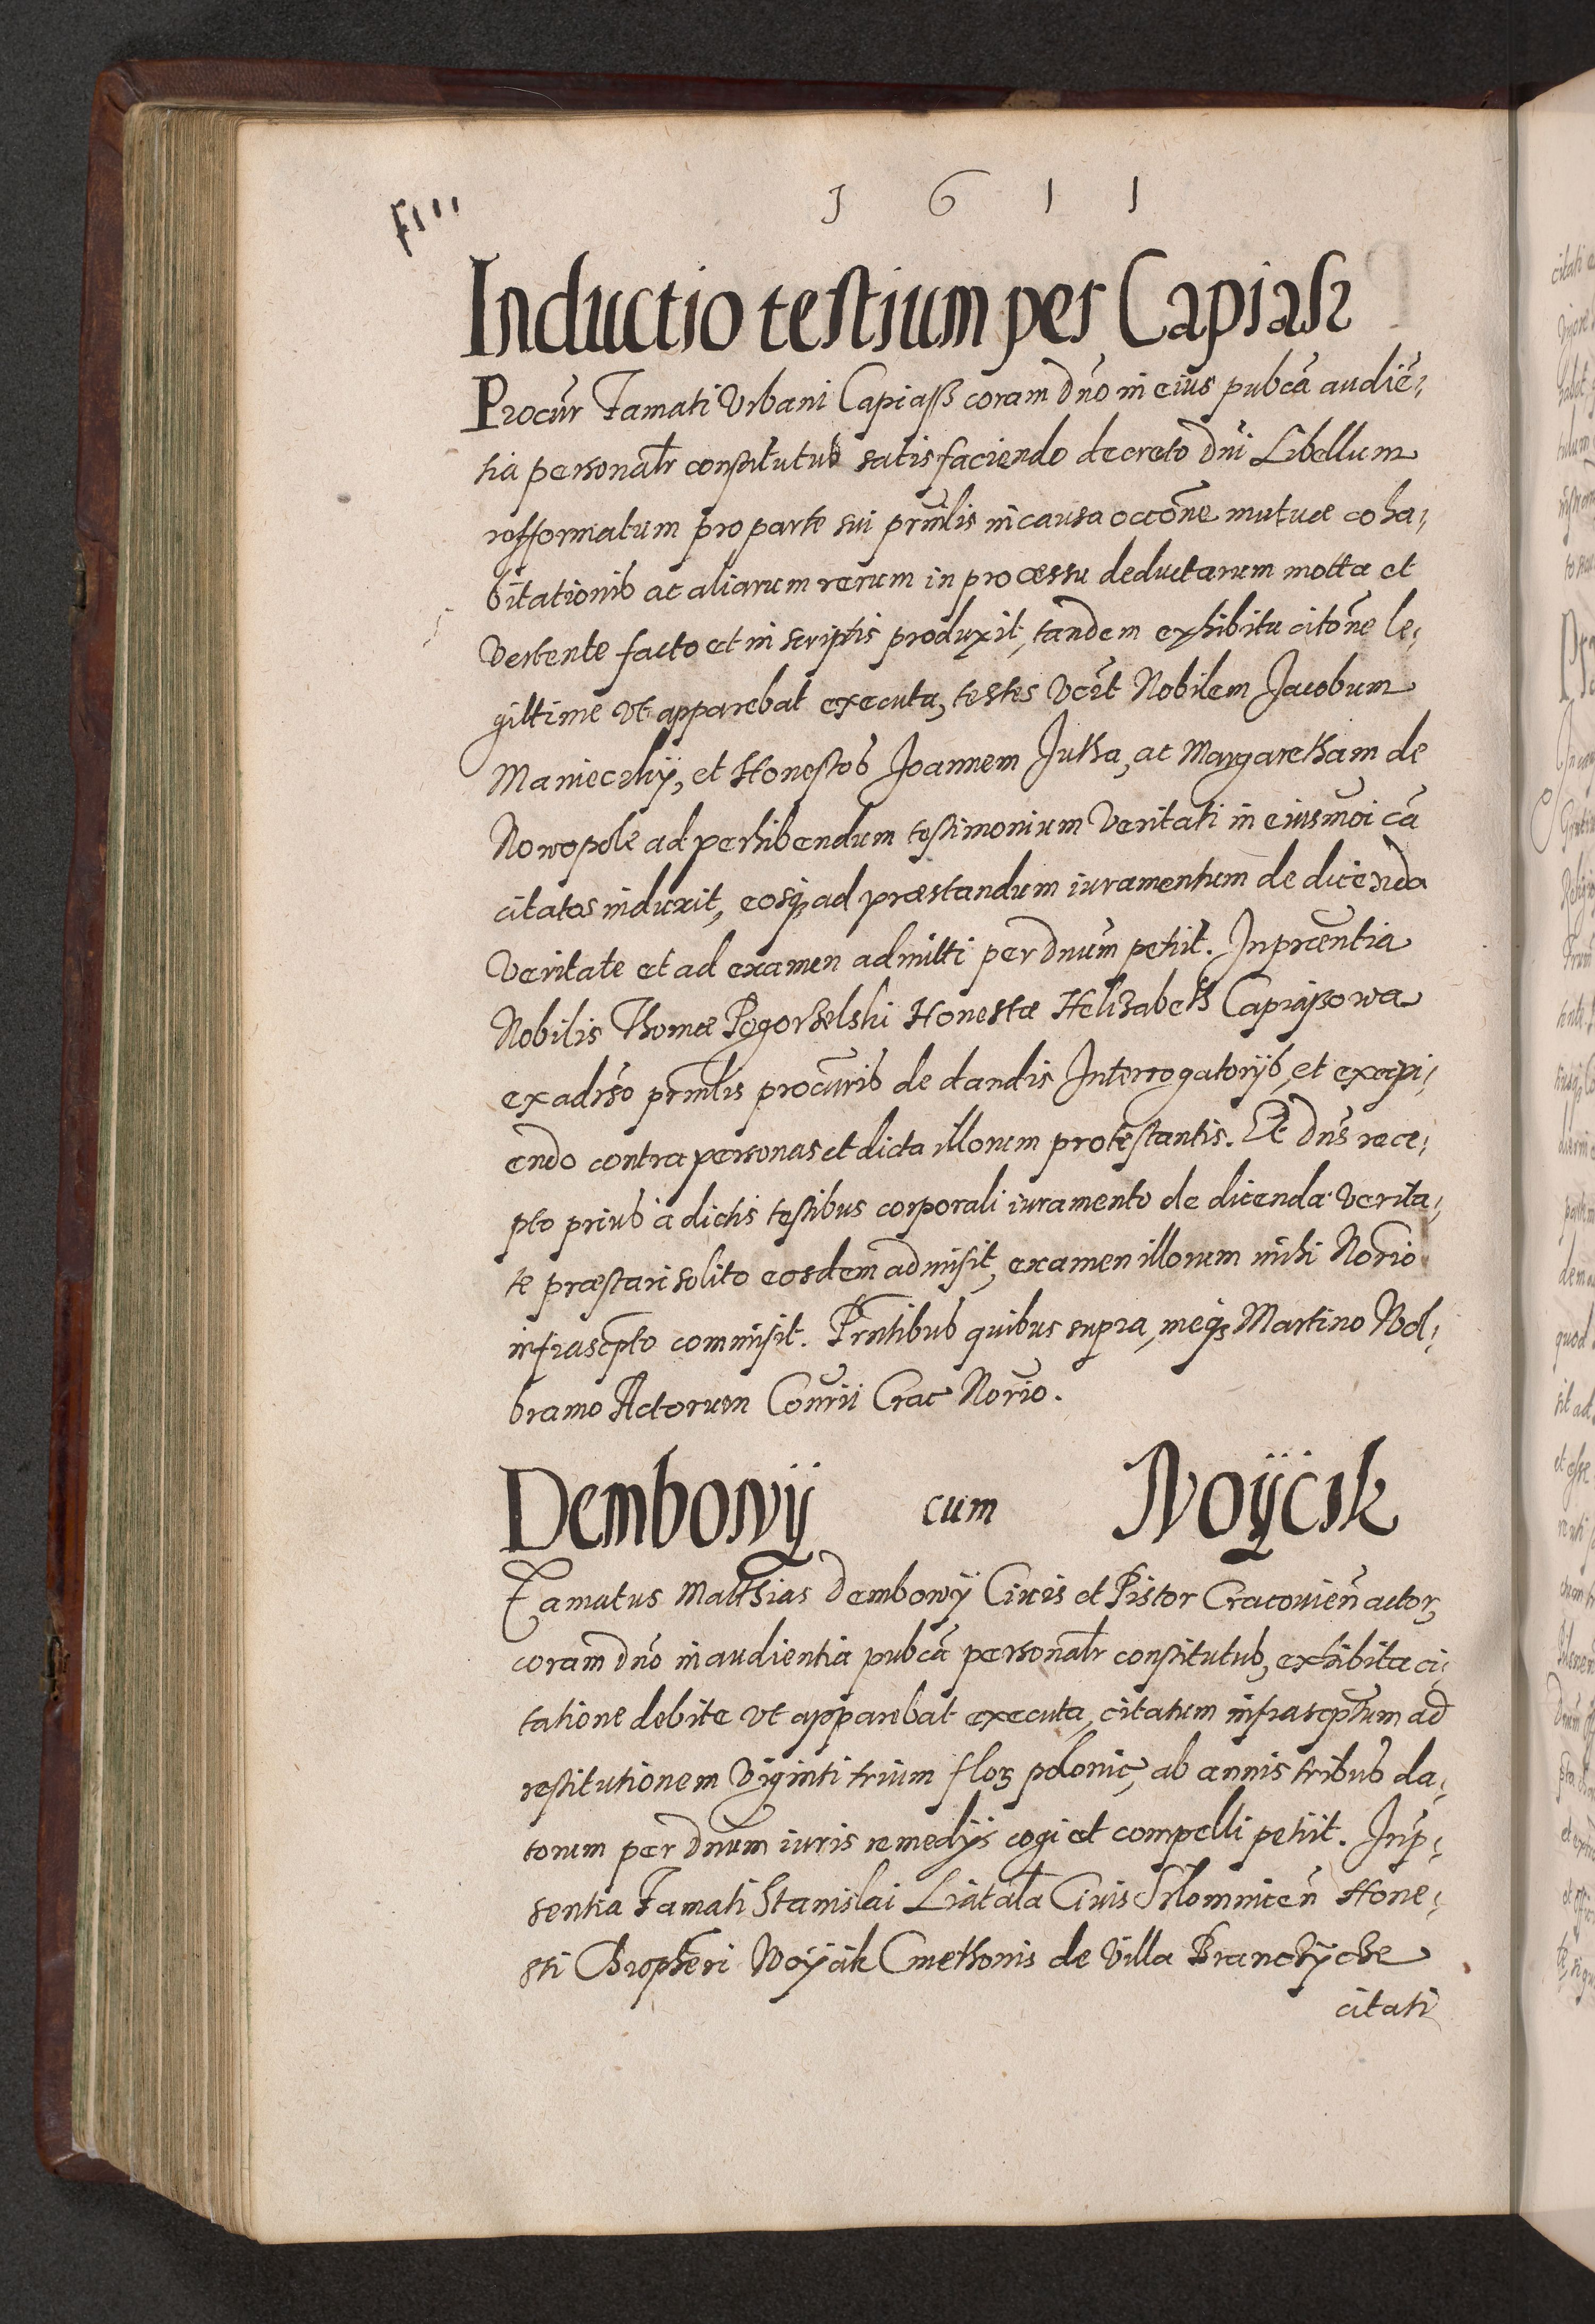 1 6 1 1
Inductio testium per Capiasz
Procūr Famati Vrbani Capiassz coram Dno in eius pubca audiē,
tia personalr constitutus satisfaciendo decreto Dni Libellum
refformatum pro parte sui prinlis in causa occone mutuæ coha,
bitationis ac aliarum rerum in processu deductarum motta et
vertente facto et in scriptis produxit, tandem exhibita citone le,
gittime vt apparebat executa, testes vczt Nobilem Jacobum
Manieczkij, et Honestos Joannem Jutka, ac Margaretham de
Nowopole ad perhibendum testimonium veritati in eiusmoi ca
citatos induxit, eosq3 ad præstandum iuramentum de dicenda
veritate et ad examen admitti per Dnum petiit. In præntia
Nobilis Thomæ Pogorzelski Honestæ Helizabeth Capiaszowa
ex adrso prinlis procuris de dandis Interrogatorijs, et excipi,
endo contra personas et dicta illorum protestantis. Et Dns rece,
pto prius a dictis testibus corporali iuramento de dicenda verita,
te præstari solito eosdem admisit, examen illorum mihi Norio
infrascpto commisit. Prntibus quibus supra, meq3 Martino Wol,
bramo Actorum Consrii Crac Norio.
Dembowij cum Woijcik
Famatus Matthias Dembowij Ciuis et Pistor Cracouien actor,
coram Dno in audientia pubca personalr constitutus, exhibita ci,
tatione debite vt apparebat executa, citatum infrascptum ad
restitutionem viginti trium flor polonic, ab annis tribus da,
torum per Dnum iuris remedijs cogi et compelli petiit. In p,
sentia Famati Stanislai Liatala Ciuis Slomnicen Hone,
sti Chrophori Woijcik Cmethonis de Villa Pranczijcze
citati